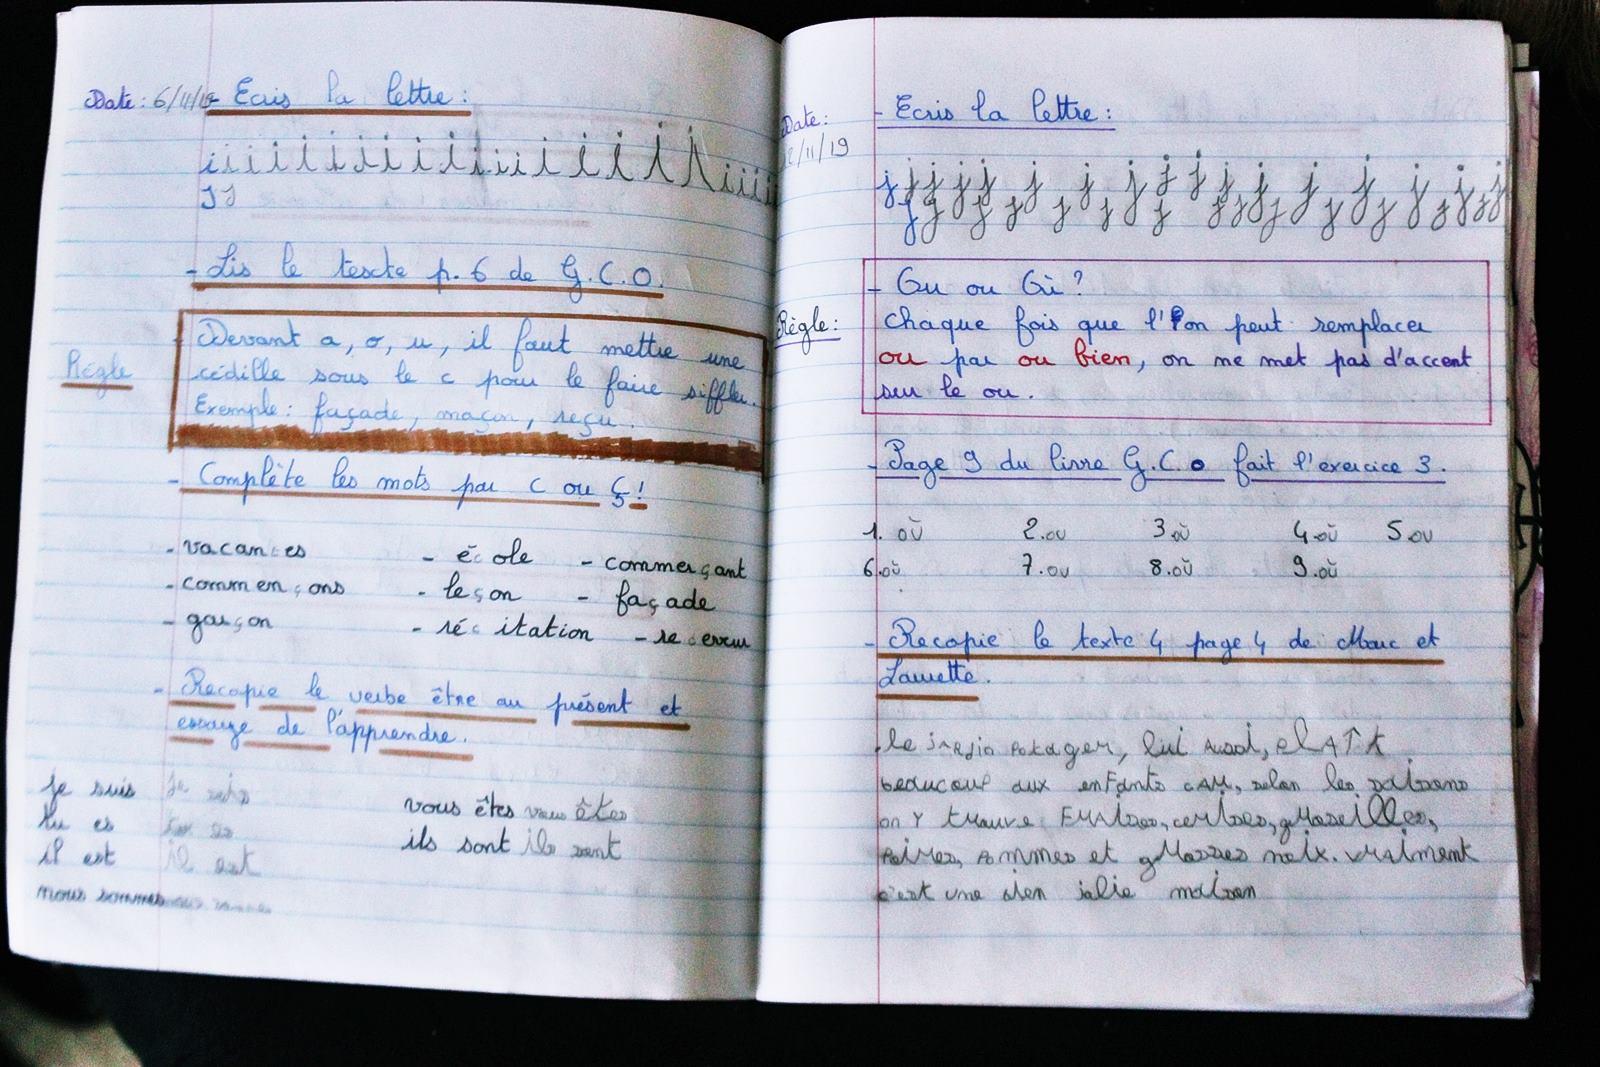 Date: 6/11/19 - Ecris la lettre:
i i i i i i i i i i i i i i i i i i i i i i
J J
- Lis le texcte p. 6 de G.C.O.
Règle
Devant a, o, u, il faut mettre une
cédille sous le c pour le faire siffler.
Exemple: façade, maçon, reçu.
- Complète les mots par c ou ç!
- vacances - école - commerçant
- commençons - leçon - façade
- garçon - récitation - receveur
- Recopie le verbe être au présent et
essaye de l'apprendre.
je suis je suis vous êtes vous êtes
tu es tu es ils sont ils sont
il est il est
nous sommes nous sommes
Date: - Ecris la lettre:
12/11/19
j j j j j j j j j j j j j j j j j j
j j j j j j j j j j j j j j j j
- Ou ou Où?
Règle: chaque fois que l'on peut remplacer
ou par ou bien, on ne met pas d'accent
sur le ou.
- Page 9 du livre G.C.O fait l'exercice 3.
1. où 2. ou 3. où 4. où 5. ou
6. où 7. ou 8. où 9. où
- Recopie le texte 4 page 4 de Marc et
Laurette.
le potager, lui aussi, plaît
beaucoup aux enfants car, selon les saisons
on y trouve fraises, cerises, groseilles,
poires, pommes et grosses noix. vraiment
c'est une bien jolie maison